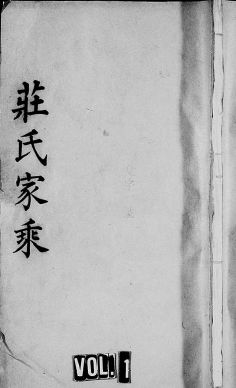 莊氏家乘
VOL. 1